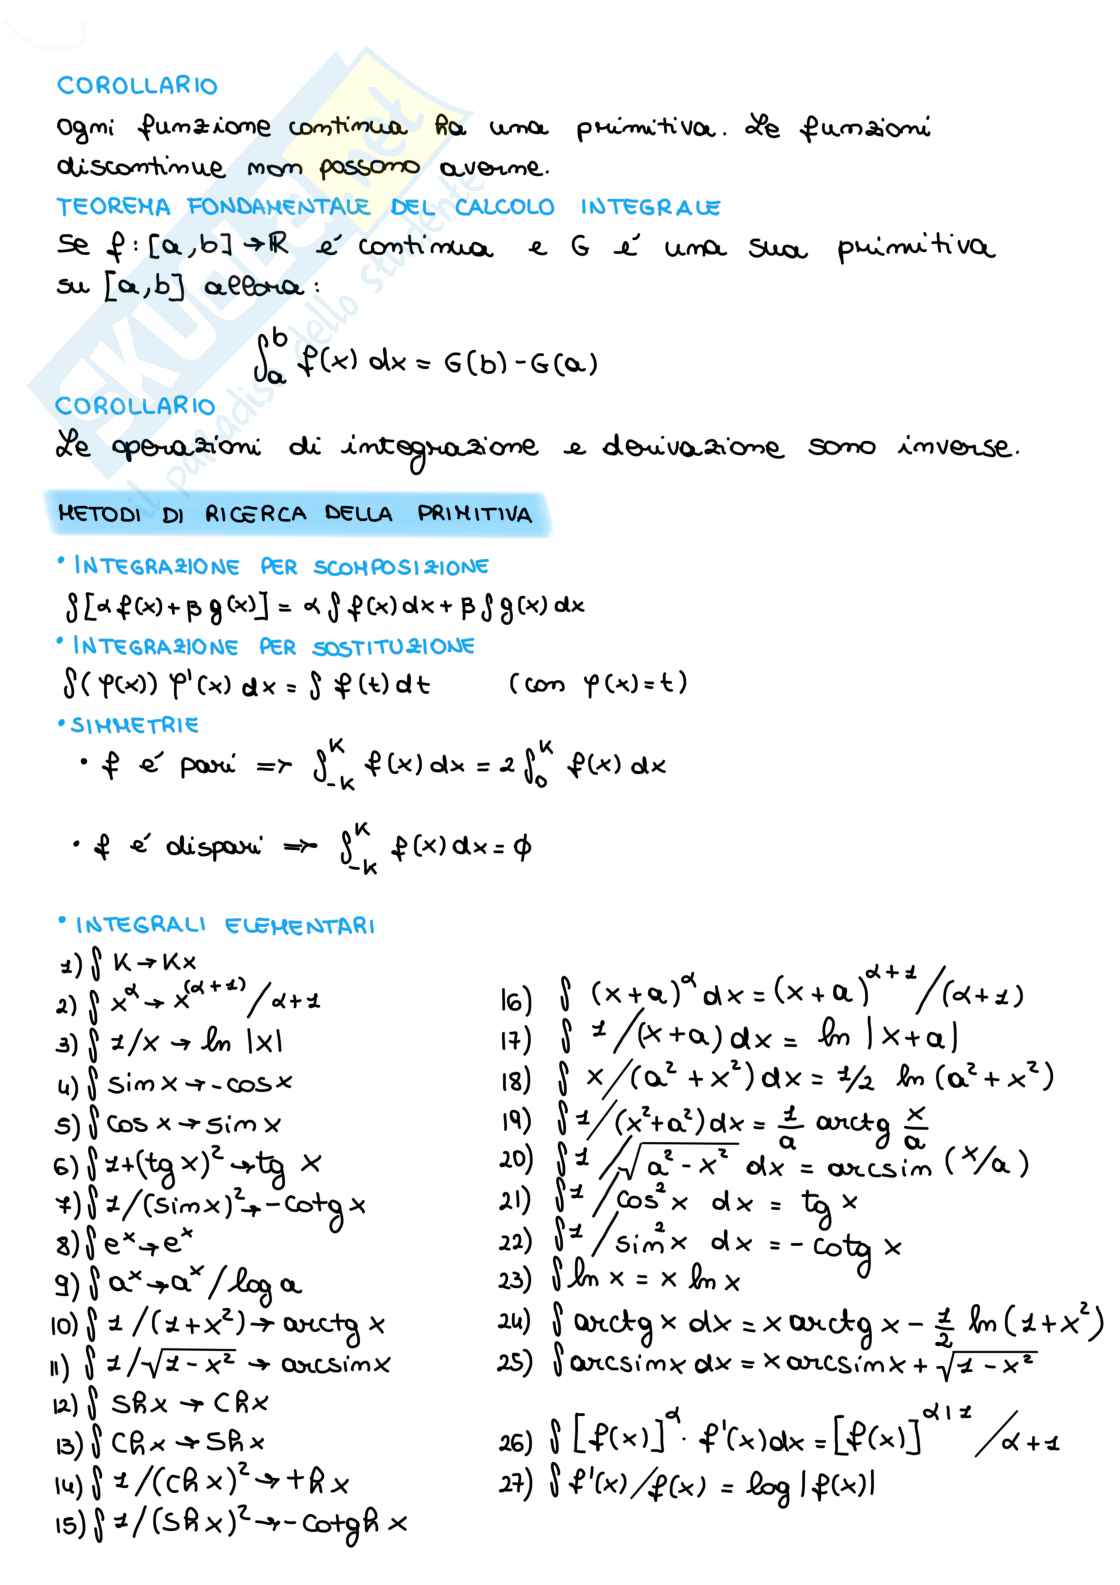 COROLLARIO
Ogni funzione continua ha una primitiva. Le funzioni
discontinue non possono averne.
TEOREMA FONDAMENTALE DEL CALCOLO INTEGRALE
Se f: [a,b] → ℝ é continua e G é una sua primitiva
su [a,b] allora:
∫_a^b f(x) dx = G(b) - G(a)
COROLLARIO
Le operazioni di integrazione e derivazione sono inverse.
METODI DI RICERCA DELLA PRIMITIVA
• INTEGRAZIONE PER SCOMPOSIZIONE
∫[α f(x) + β g(x)] = α ∫ f(x) dx + β ∫ g(x) dx
• INTEGRAZIONE PER SOSTITUZIONE
∫(φ(x)) φ'(x) dx = ∫ f(t) dt (con φ(x)=t)
• SIMMETRIE
• f é pari => ∫_-K^K f(x) dx = 2 ∫_0^K f(x) dx
• f é dispari => ∫_-K^K f(x) dx = ϕ
• INTEGRALI ELEMENTARI
1) ∫ K → Kx
2) ∫ x^α → x^(α+1) / α+1
3) ∫ 1/x → ln |x|
4) ∫ sin x → -cos x
5) ∫ cos x → sin x
6) ∫ 1+(tg x)² → tg x
7) ∫ 1/(sin x)² → -cotg x
8) ∫ e^x → e^x
9) ∫ a^x → a^x / log a
10) ∫ 1/(1+x²) → arctg x
11) ∫ 1/√(1-x²) → arcsin x
12) ∫ Sh x → Ch x
13) ∫ Ch x → Sh x
14) ∫ 1/(Ch x)² → th x
15) ∫ 1/(Sh x)² → -cotgh x
16) ∫ (x+a)^α dx = (x+a)^α+1 /(α+1)
17) ∫ 1/(x+a) dx = ln |x+a|
18) ∫ x/(a² + x²) dx = 1/2 ln (a² + x²)
19) ∫ 1/(x²+a²) dx = 1/a arctg x/a
20) ∫ 1/√(a² - x²) dx = arcsin (x/a)
21) ∫ 1/cos² x dx = tg x
22) ∫ 1/sin² x dx = - cotg x
23) ∫ ln x = x ln x
24) ∫ arctg x dx = x arctg x - 1/2 ln (1+x²)
25) ∫ arcsin x dx = x arcsin x + √(1-x²)
26) ∫ [f(x)]^α · f'(x) dx = [f(x)]^α+1 / α+1
27) ∫ f'(x)/f(x) = log |f(x)|
SKUOLA.net
il paradiso dello studente